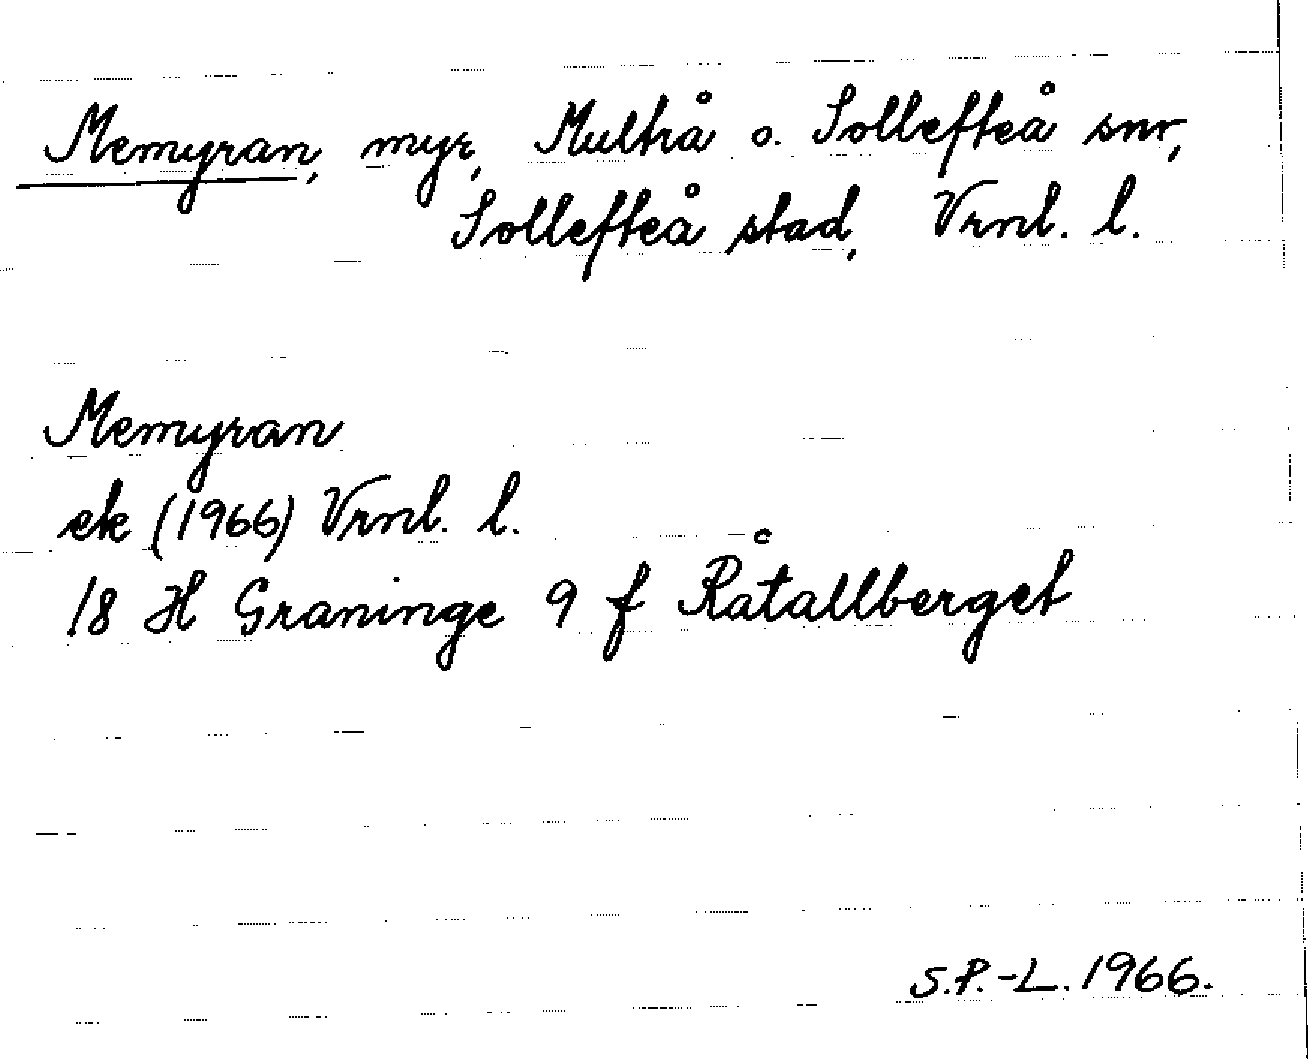 Memyran, myr, Multrå o. Sollefteå snr,
Sollefteå stad, Vrnl. l.
Memyran
ek (1966) Vrnl. l.
18 H Graninge 9 f Råtallberget
S.P.-L. 1966.